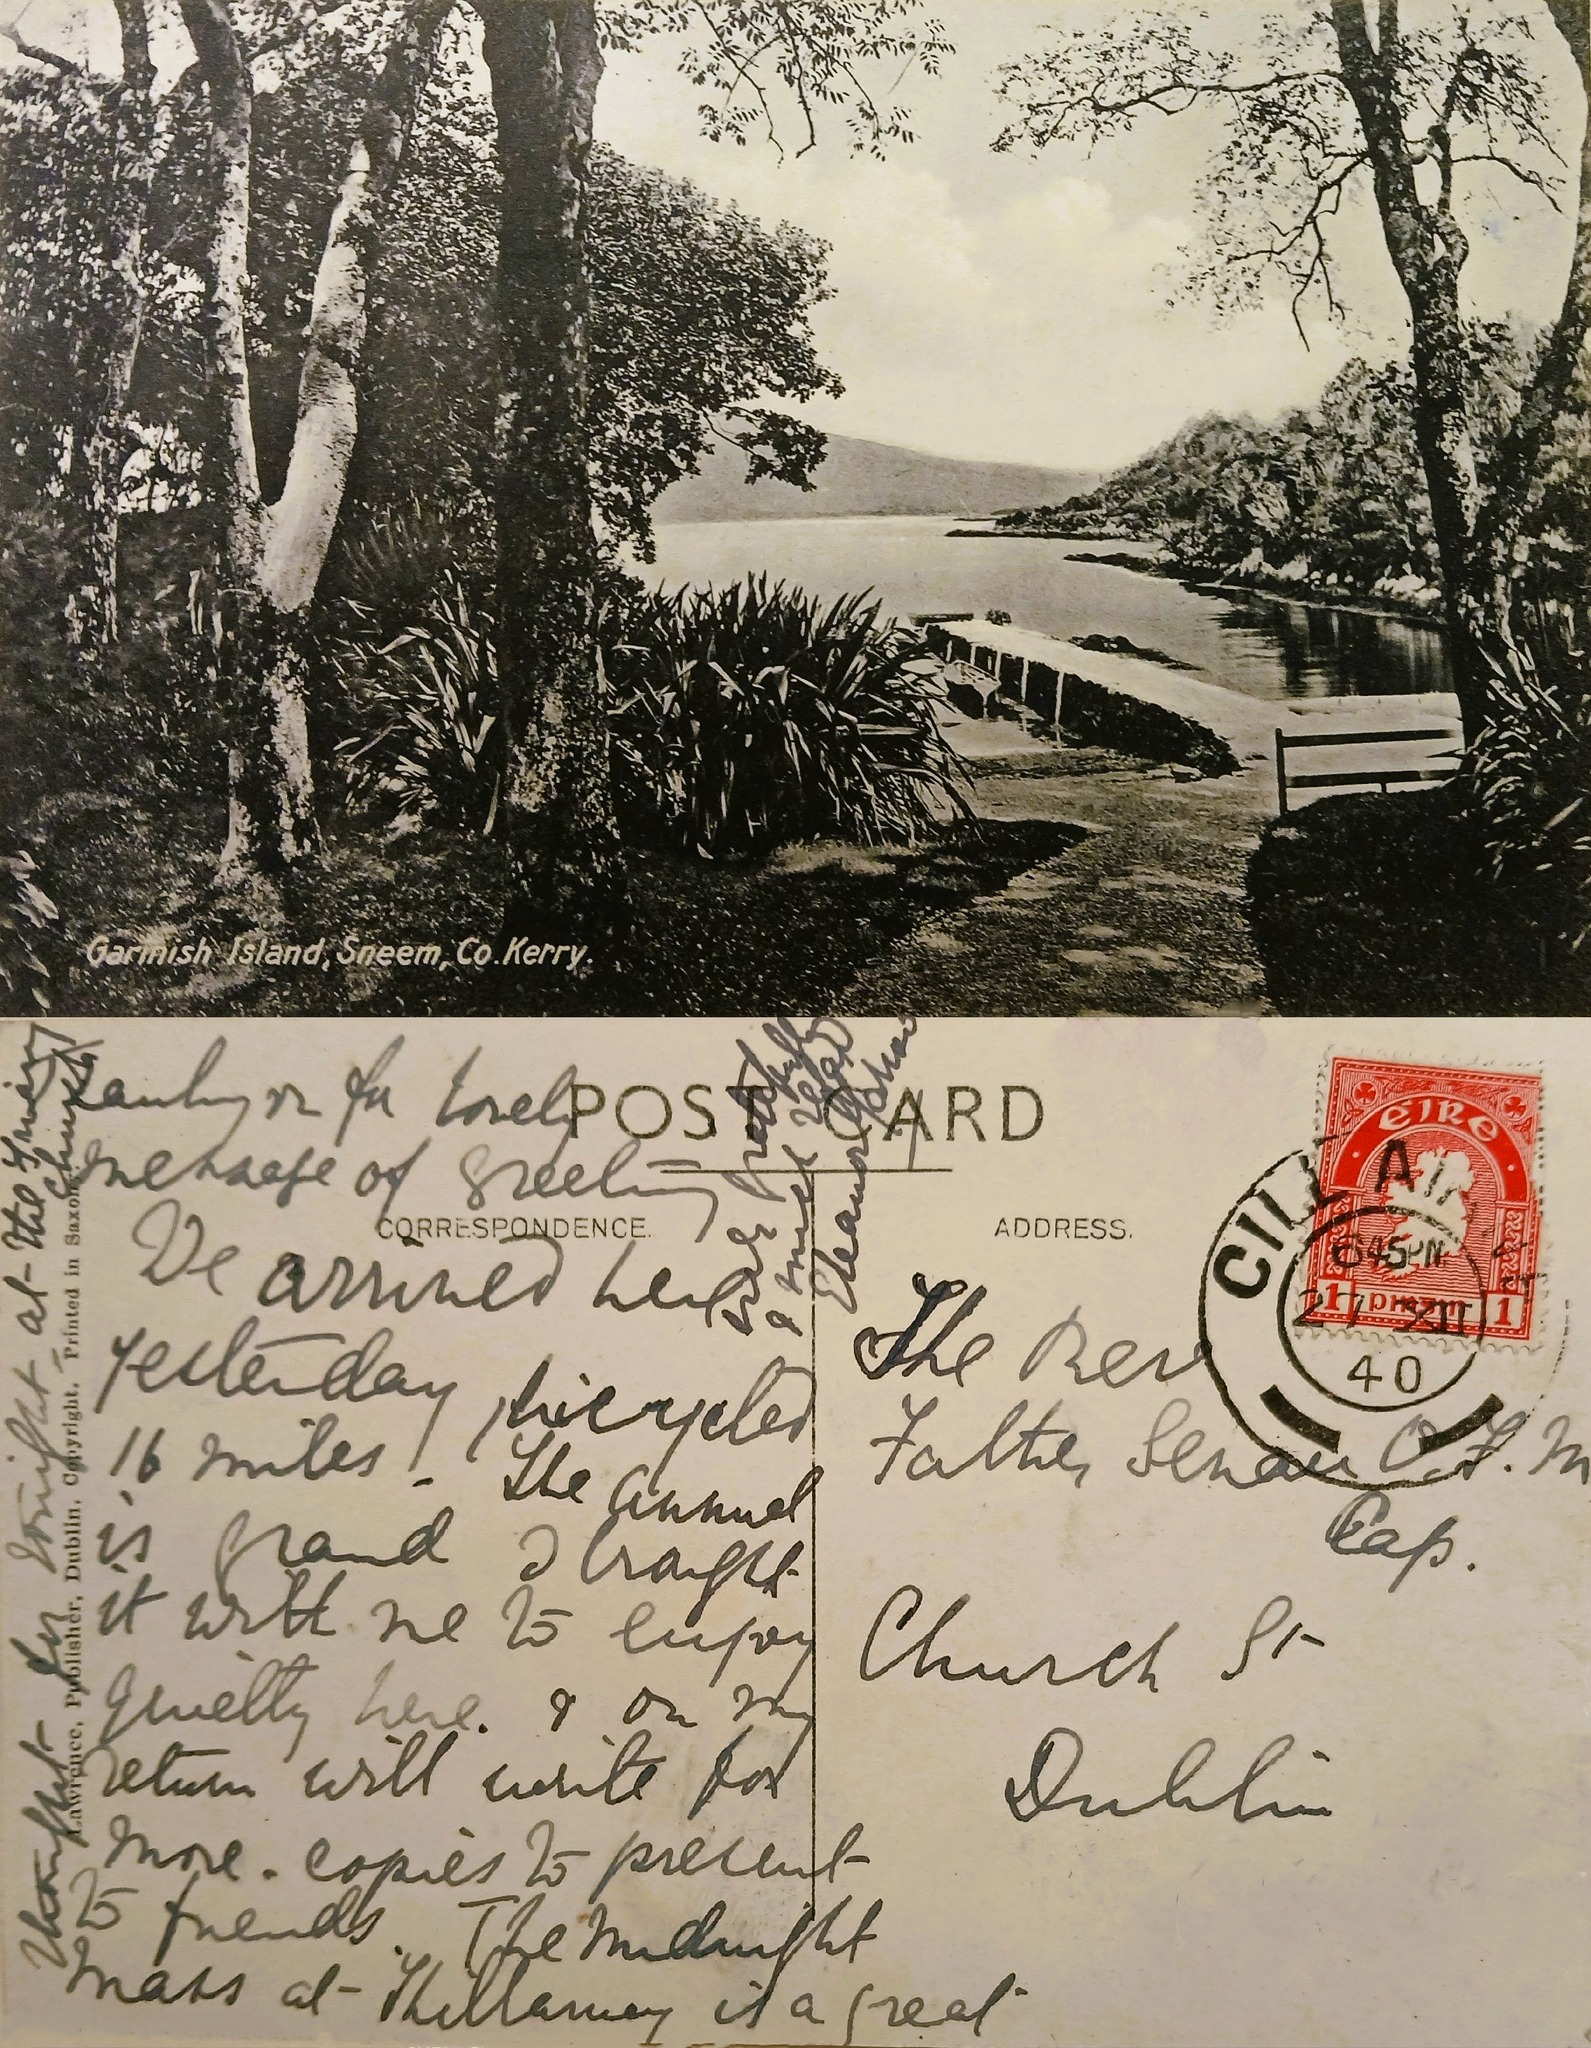 Garinish Island, Sneem, Co. Kerry.
POST CARD
CORRESPONDENCE.
ADDRESS.
Lawrence, Publisher, Dublin. Copyright. Printed in Saxony.
for lovely
message of greeting
We arrived here
yesterday, bicycled
16 miles. The annual
is grand I brought
it with me to enjoy
quietly here. & on my
return will write for
more copies to present
to friends. The midnight
mass at Killarney is a great
thought for tonight at the
Eleanor
The Rev
Father Senan O.F.M
Cap.
Church St
Dublin
ÉIRE
1 pinginn 1
CILL AIR
6 45PM
27 XII
40